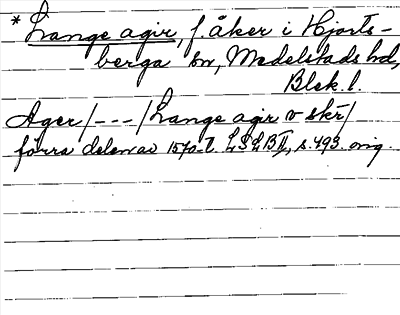 * Lange agir, f. åker i Hjorts-
berga sn, Medelstads hd,
Blek. l.
Ager / - - - / Lange agir v skr /
förra delen av 1570-t. LSLB II, s. 493. orig.